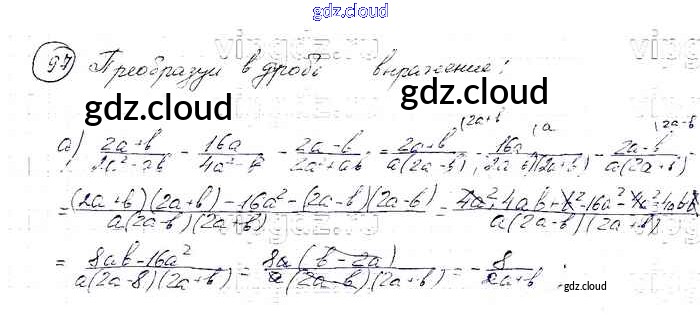 gdz.cloud
97 Преобразуй в дробь выражение:
gdz.cloud gdz.cloud
а) (2a+b)/(2a²-ab) - 16a/(4a²-b²) - (2a-b)/(2a²+ab) = (2a+b)/(a(2a-b)) - 16a/((2a-b)(2a+b)) - (2a-b)/(a(2a+b)) =
= ((2a+b)(2a+b)-16a²-(2a-b)(2a-b))/(a(2a-b)(2a+b)) = (4a²+4ab+b²-16a²-4a²+4ab-b²)/(a(2a-b)(2a+b)) =
= (8ab-16a²)/(a(2a-b)(2a+b)) = 8a(b-2a)/(a(2a-b)(2a+b)) = - 8/(2a+b) .
gdz.cloud